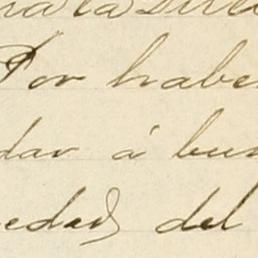 Por habe
dar á bus
edad del